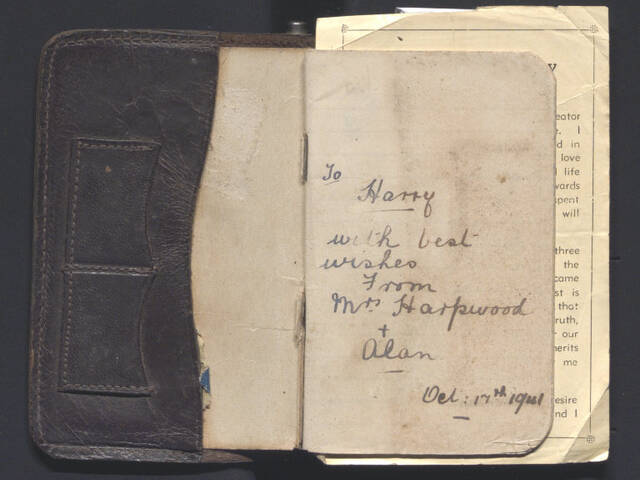 To
Harry
with best
wishes
From
Mrs Harpwood
+
Alan
Oct: 17th 1941
y
eator
I
d in
love
life
wards
spent
will
three
the
came
st is
that
ruth,
our
erits
me
esire
nd I